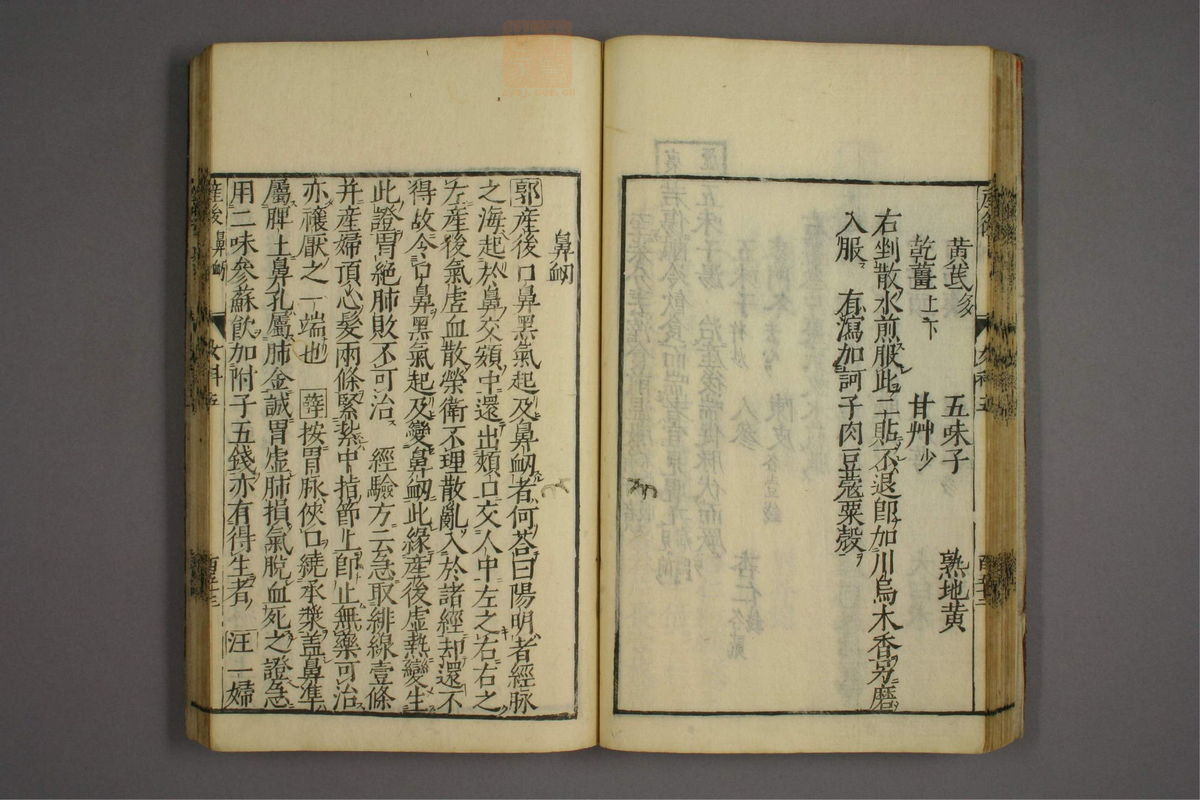 黃茋多 五味子 熟地黃
乾薑上下 甘艸少
右剉散水煎服此二貼不退即加川烏木香另磨
入服 有瀉加訶子肉豆蔻粟殼
鼻衂
郭産後口鼻黑氣起及鼻衂者何荅曰陽明者經脉
之海起於鼻交頞中還出頰口交人中左之右右之
左産後氣虛血散榮衛不理散亂入於諸經却還不
得故令口鼻黑氣起及變鼻衂此緣産後虛熱變生
此證胃絶肺敗不可治 經驗方云急取緋線壹條
并産婦頂心髮兩條緊紮中指節上即止無藥可治
亦禳厭之一端也 薛按胃脉俠口繞承漿盖鼻準
屬脾土鼻孔屬肺金誠胃虛肺損氣脫血死之證急
用二味參蘇飲加附子五錢亦有得生者 汪一婦
産後鼻衂 女科五